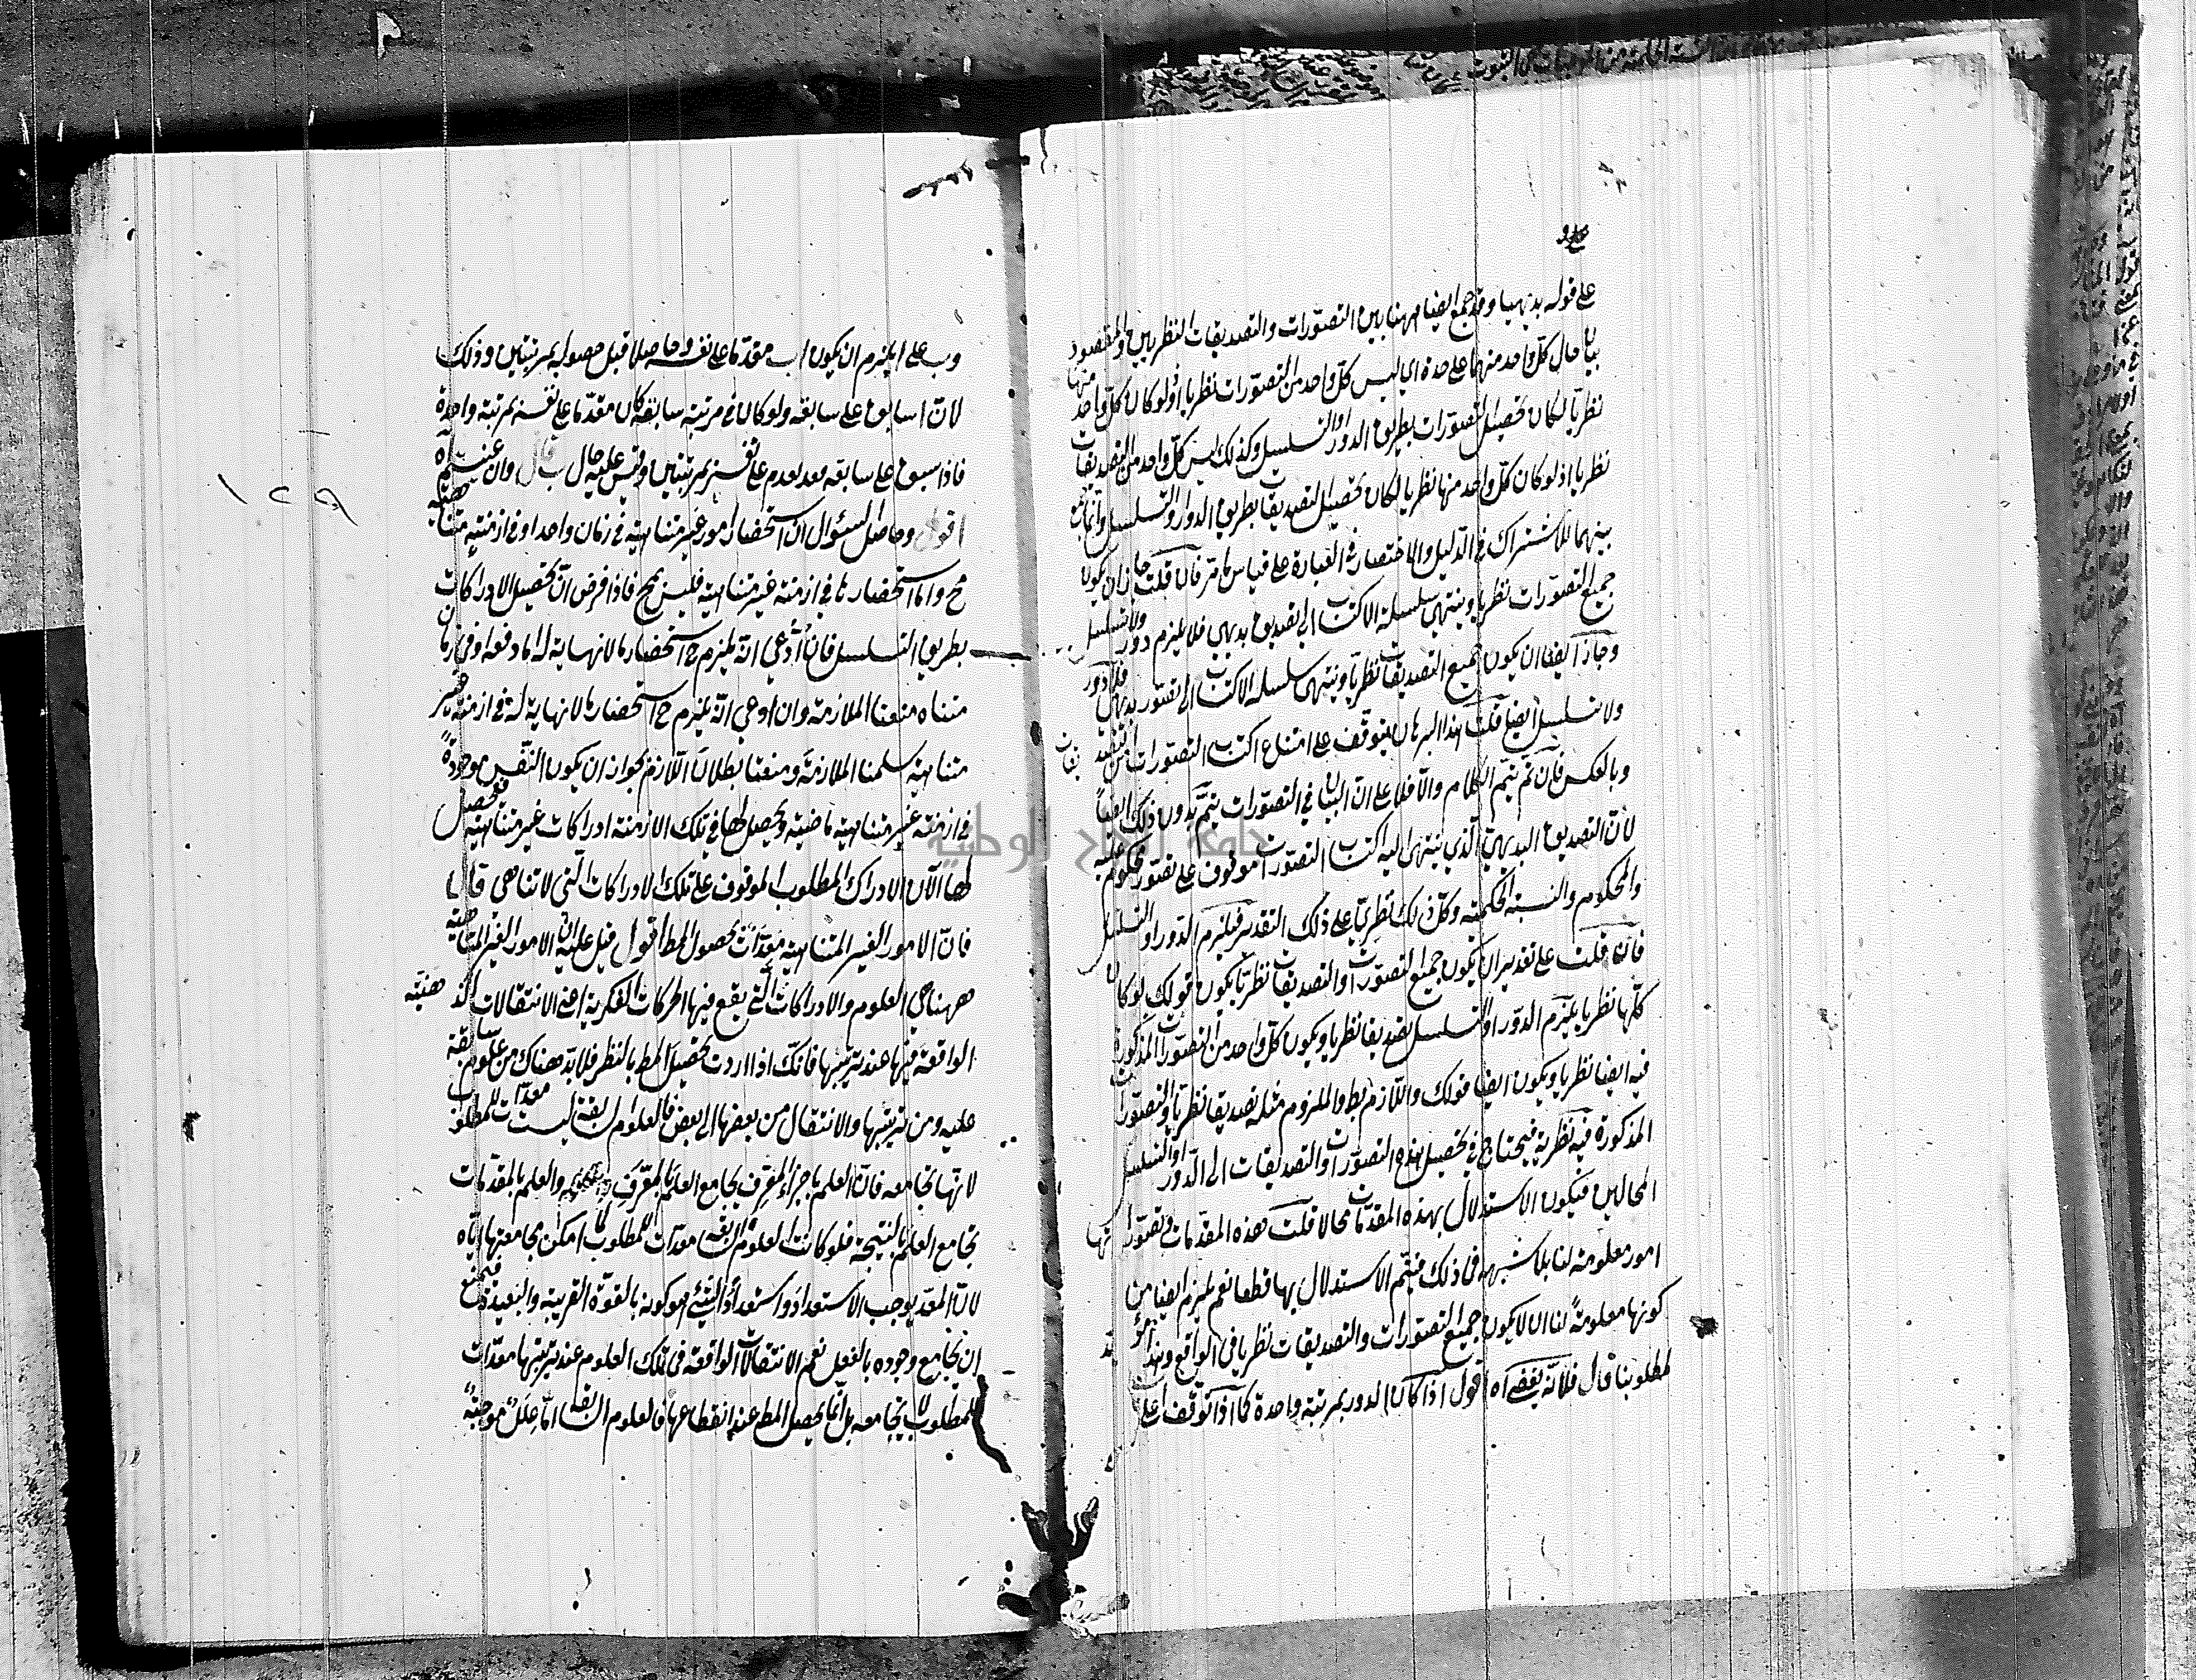 على قوله بديهيا وقد جمع ايضا ههنا بين التصورات والتصديقات النظريين والمقصود
بيان حال كل واحد منهما على حدة اي ليس كل واحد من التصورات نظريا اذ لو كان كل واحد منها
نظريا لكان تحصيل التصورات بطريق الدور او التسلسل وكذلك ليس كل واحد من التصديقات
نظريا اذ لو كان كل واحد منها نظريا لكان تحصيل التصديقات بطريق الدور او التسلسل وانما جمع
بينهما للاشتراك في الدليل والاختصار في العبارة على قياس ما مر فان قلت جاز ان يكون
جميع التصورات نظريا وينتهي سلسلة الاكتساب الى تصديق بديهي فلا يلزم دور ولا تسلسل
وجاز ايضا ان يكون جميع التصديقات نظريا وينتهي سلسلة الاكتساب الى تصور بديهي فلا دور
ولا تسلسل ايضا قلت هذا البرهان يتوقف على امتناع اكتساب التصورات من التصديقات
وبالعكس فان تم يتم الكلام والا فلا على ان البيان في التصورات يتم بدون ذلك ايضا
لان التصديق البديهي الذي ينتهي اليه اكتساب التصورات موقوف على تصور المحكوم عليه
والمحكوم به والنسبة الحكمية وكل ذلك نظري على ذلك التقدير فيلزم الدور او التسلسل
فان قلت على تقدير ان يكون جميع التصورات والتصديقات نظريا يكون قولك لو كان
كلها نظريا يلزم الدور او التسلسل تصديقا نظريا ويكون كل واحد من التصورات المذكورة
فيه ايضا نظريا ويكون ايضا قولك واللازم بط والملزوم مثله تصديقا نظريا والتصورات
المذكورة فيه نظرية فيحتاج في تحصيل هذه التصورات والتصديقات الى الدور او التسلسل
المحالين فيكون الاستدلال بهذه المقدمات محالا قلت هذه المقدمات وتصوراتها
امور معلومة لنا بلا شبهة في ذلك فيتم الاستدلال بها قطعا نعم يلزم ايضا من
كونها معلومة لنا ان لا يكون جميع التصورات والتصديقات نظريا في الواقع وهذا هو
مطلوبنا قال فلانه يفضي اه اقول اذا كان الدور بمرتبة واحدة كما اذا توقف ا على
وب على ا يلزم ان يكون ا ب مقدما على نفسه وحاصلا قبل حصوله بمرتبتين وذلك
لان ا سابق على سابقه ولو كان في مرتبة سابقه كان مقدما على نفسه بمرتبة واحدة
فاذا سبق على سابقه فقد تقدم على نفسه بمرتبتين وقس عليه حال ب قال وان عنيتم اه
اقول وحاصل السؤال ان استحضار امور غير متناهية في زمان واحد او في ازمنة متناهية
مح واما استحضارها في ازمنة غير متناهية فليس بمح فاذا فرض ان تحصيل الادراكات
بطريق التسلسل فان ادعي انه يلزم ح استحضار ما لا نهاية له اما دفعة او في زمان
متناه منعنا الملازمة وان ادعي انه يلزم ح استحضار ما لا نهاية له في ازمنة غير
متناهية سلمنا الملازمة ومنعنا بطلان اللازم لجواز ان يكون النفس موجودة
في ازمنة غير متناهية ماضية ويحصل لها في تلك الازمنة ادراكات غير متناهية فيحصل
لها الآن الادراك المطلوب الموقوف على تلك الادراكات التي لا تتناهى قال
فان الامور الغير المتناهية معدات لحصول المط اقول قيل عليه ان الامور الغير المتناهية
ههنا هي العلوم والادراكات التي يقع فيها الحركات الفكرية اعني الانتقالات الذهنية
الواقعة فيها عند ترتيبها فانك اذا اردت تحصيل المط بالنظر فلا بد هناك من علوم سابقة
عليه ومن ترتيبها والانتقال من بعضها الى بعض فالعلوم السابقة ليست معدات للمطلوب
لانها تجامعه فان العلم باجزاء المعرف يجامع العلم بالمعرف والعلم بالمقدمات
تجامع العلم بالنتيجة فلو كانت العلوم السابقة معدات للمطلوب لما امكن مجامعتها اياه
لان المعد يوجب الاستعداد واستعداد الشيئ هو كونه بالقوة القريبة والبعيدة فيمتنع
ان تجامع وجوده بالفعل نعم الانتقالات الواقعة في تلك العلوم عند ترتيبها معدات
للمطلوب لا يجامعه بل انما يحصل المط عند انقطاعها فالعلوم السابقة اما علل موجبة